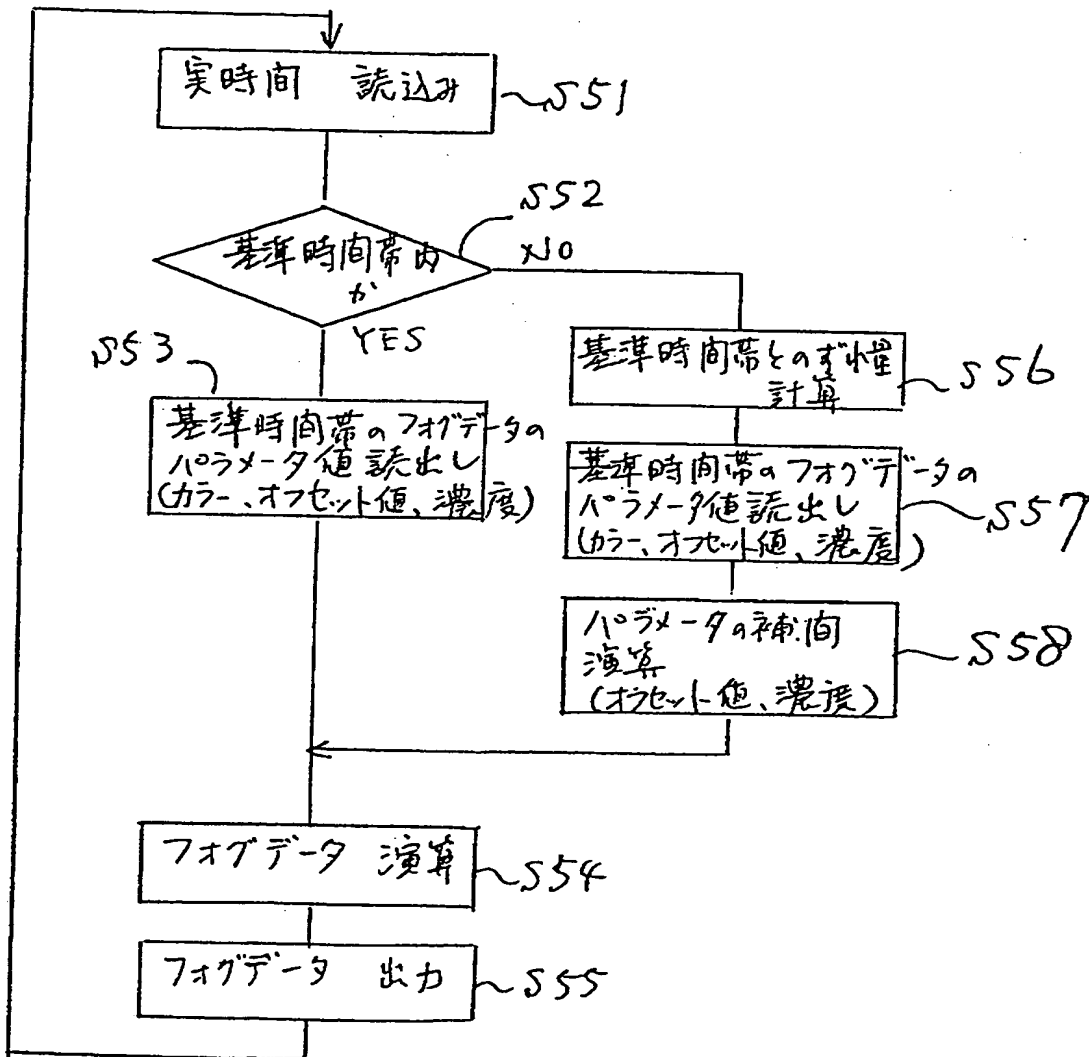 実時間 読込み
S51
S52
基準時間帯内
か
NO
YES
S53
基準時間帯のフォグデータの
パラメータ値読出し
(カラー、オフセット値、濃度)
基準時間帯とのずれ量
計算
S56
基準時間帯のフォグデータの
パラメータ値読出し
(カラー、オフセット値、濃度)
S57
パラメータの補間
演算
(オフセット値、濃度)
S58
フォグデータ 演算
S54
フォグデータ 出力
S55